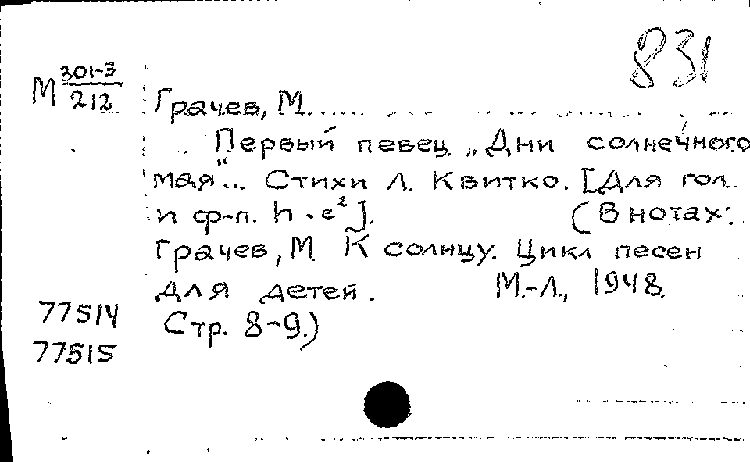 831
М 301-3/212
Грачев, М.
Первый певец. „Дни солнечного
мая"... Стихи Л. Квитко. [Для гол.
и ф-п. h - e²]. (В нотах:
Грачев, М. К солнцу. Цикл песен
для детей. М.-Л., 1948.
Стр. 8-9.)
77514
77515